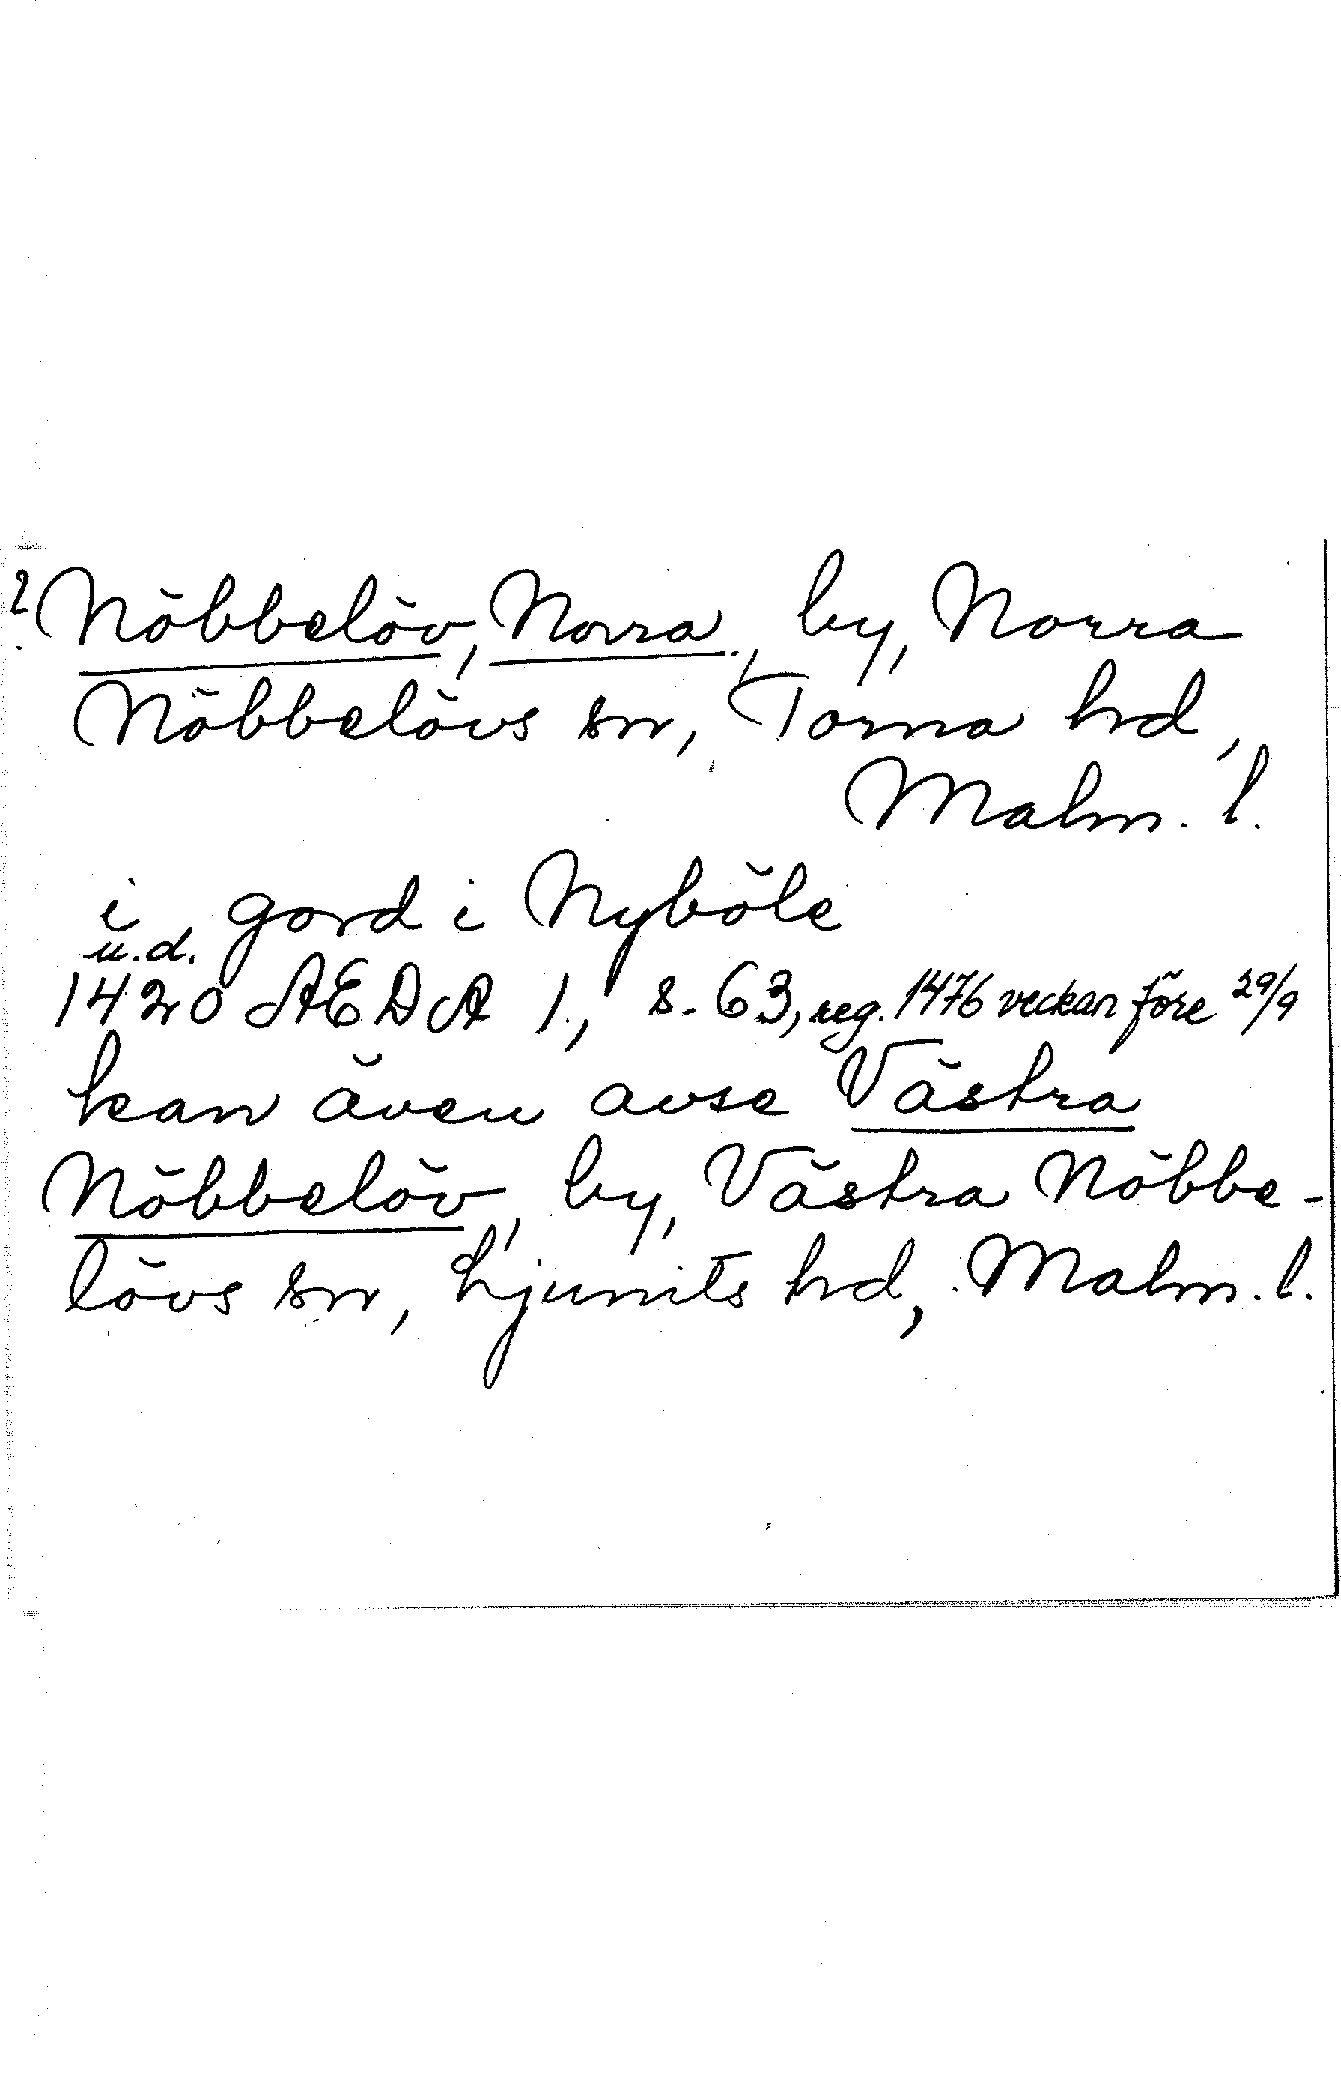 ? Nöbbelöv, Norra, by, Norra
Nöbbelövs sn, Torna hd,
Malm. l.
i gord i Nyböle
u.d.
1420 AEDA 1, s. 63, reg. 1476 veckan före 29/9
kan även avse Västra
Nöbbelöv, by, Västra Nöbbe-
lövs sn, Ljunits hd, Malm. l.